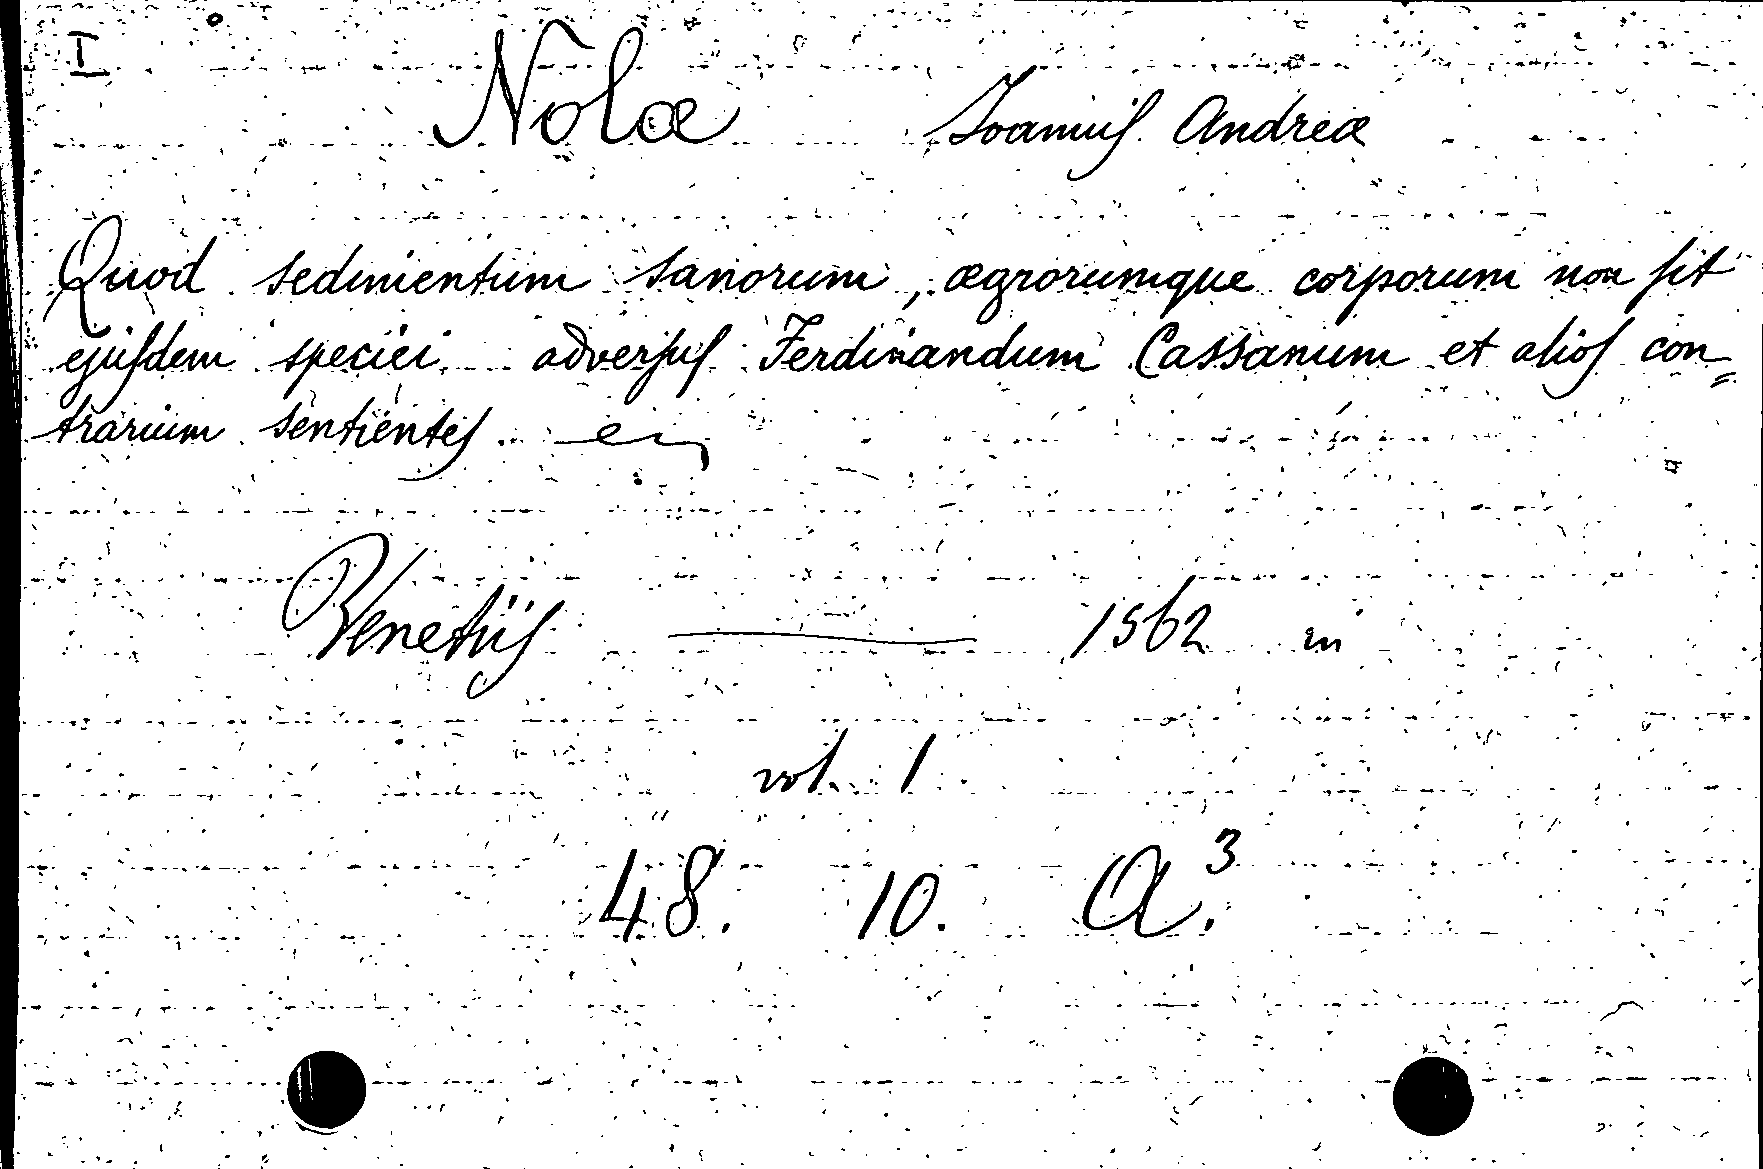 I
Nolæ Joannis Andreæ
Quod sedimentum sanorum, ægrorumque corporum non sit
ejusdem speciei adversus Ferdinandum Cassanum et alios con=
trarium sentientes.
Venetiis — 1562 in
vol. 1
48. 10. A.³